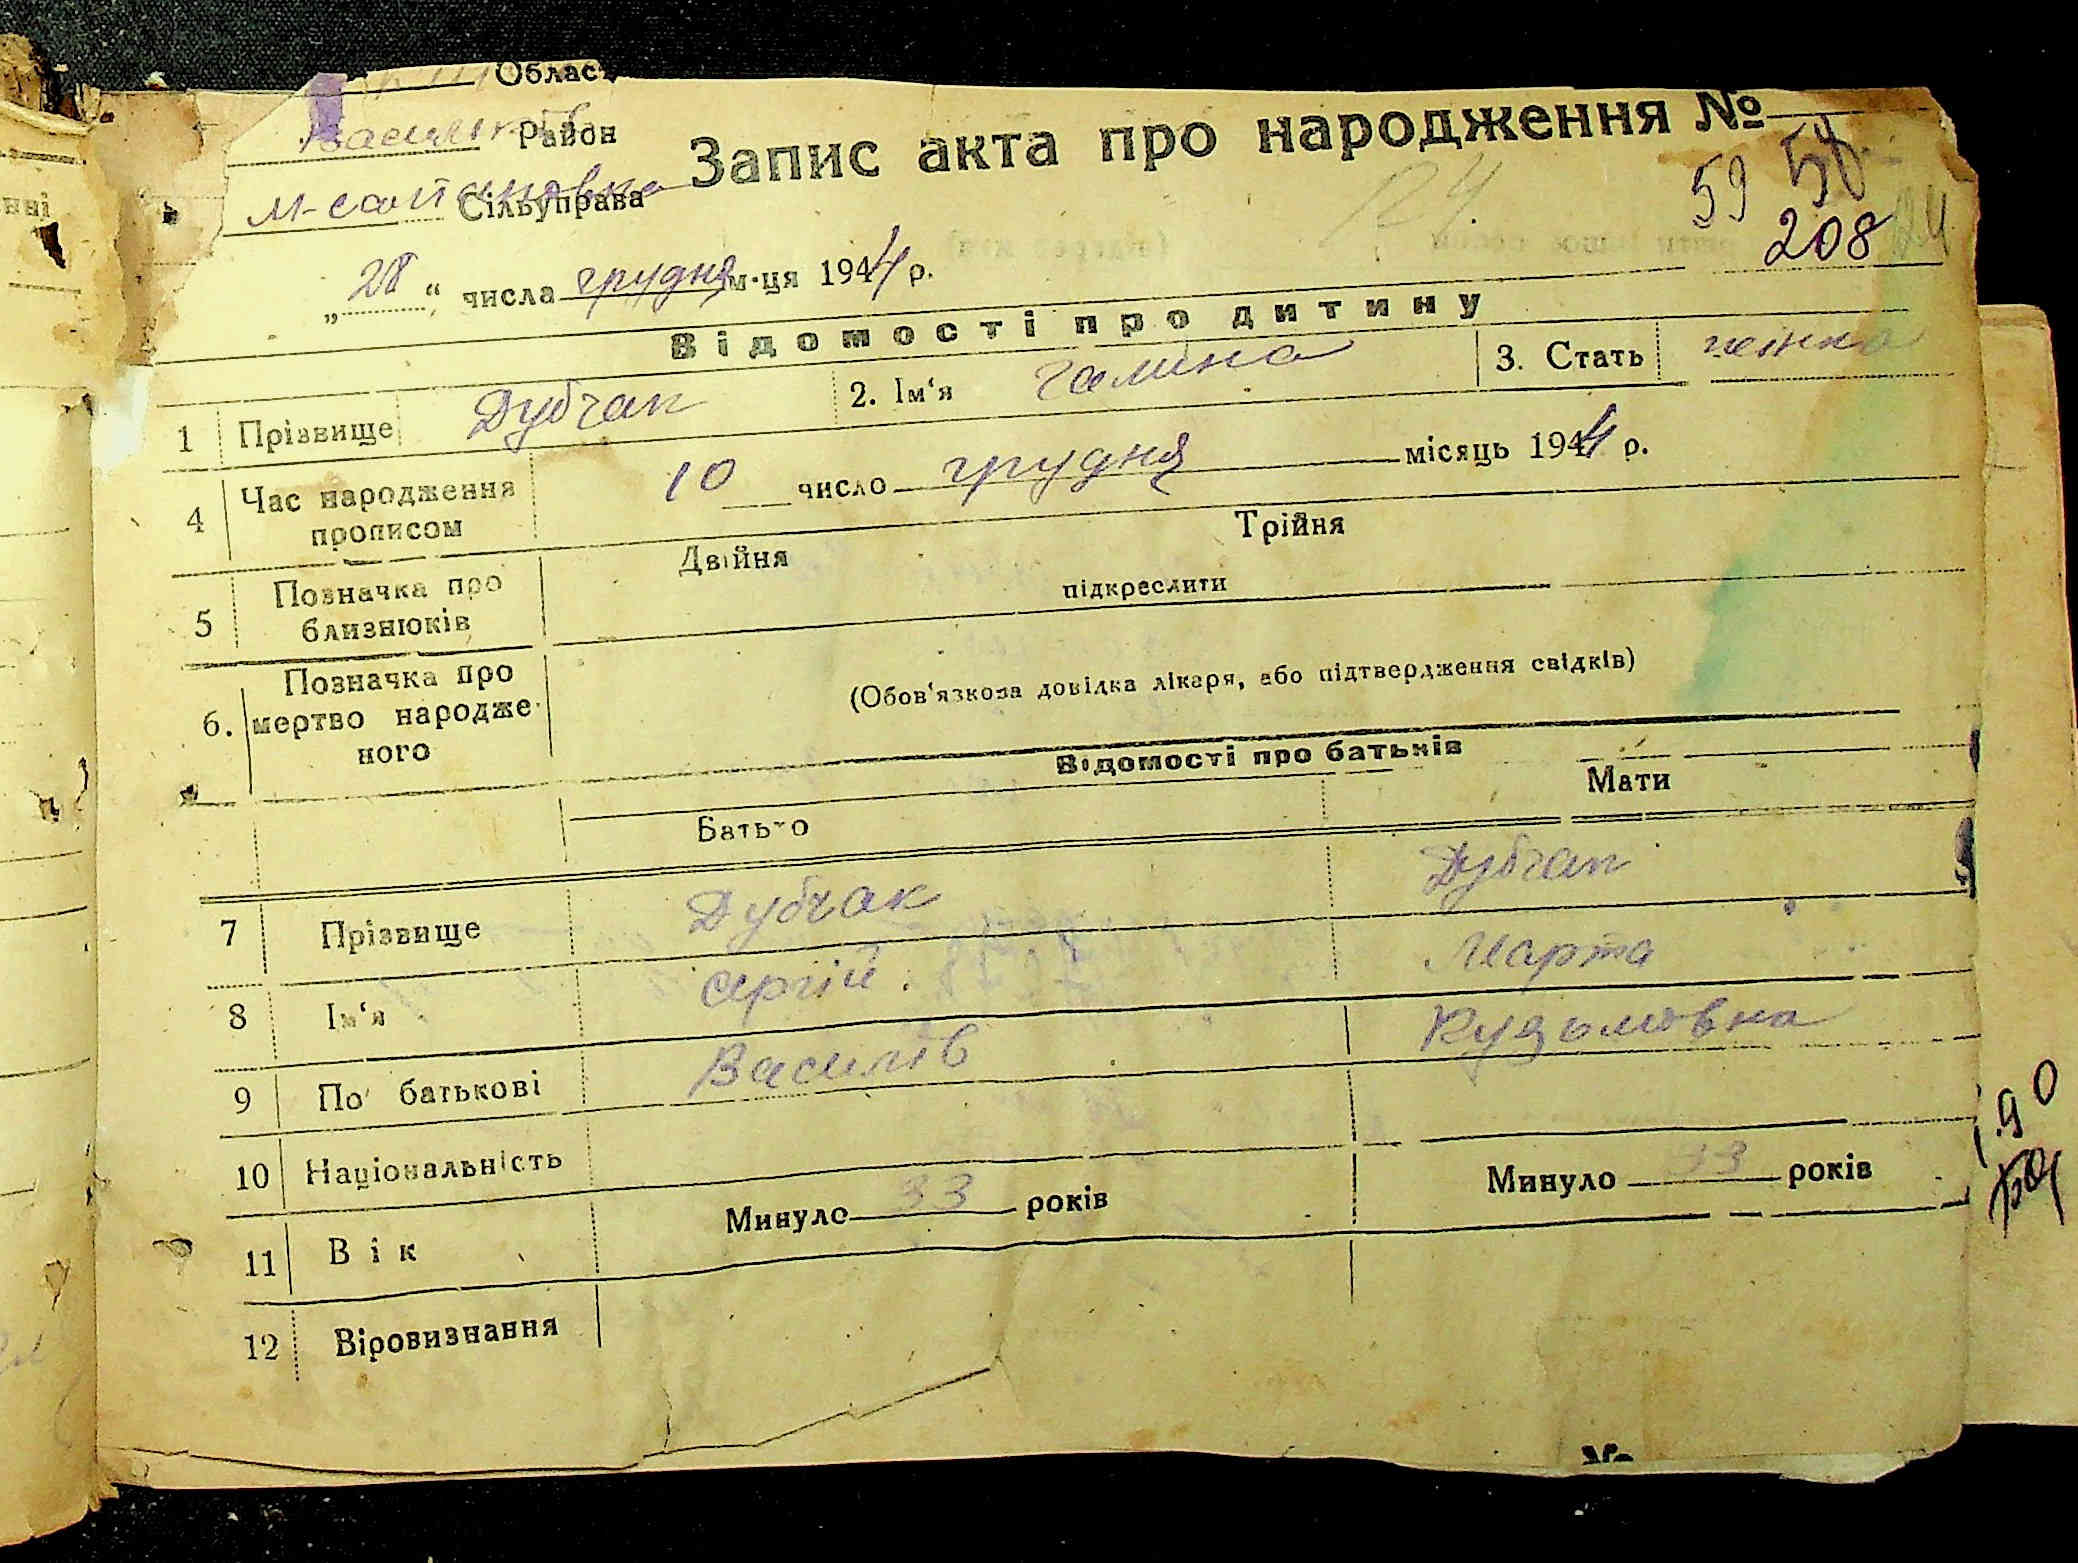 Облас
Район
М-салтановка Сільуправа
Запис акта про народження №
59 58
208
„28“ числа грудня м-ця 1944 р.
Відомості про дитину
1 Прізвище Дубчак 2. Ім‘я Галина 3. Стать жінка
4 Час народження прописом 10 число грудня місяць 1944 р.
5 Позначка про близнюків Двійня Трійня
підкреслити
6. Позначка про мертво народженого (Обов‘язкова довідка лікаря, або підтвердження свідків)
Відомості про батьків
Батько Мати
7 Прізвище Дубчак Дубчак
8 Ім‘я Сергій Марта
9 По батькові Василів Кузьмовна
10 Національність
11 Вік Минуло 33 років Минуло 33 років
12 Віровизнання